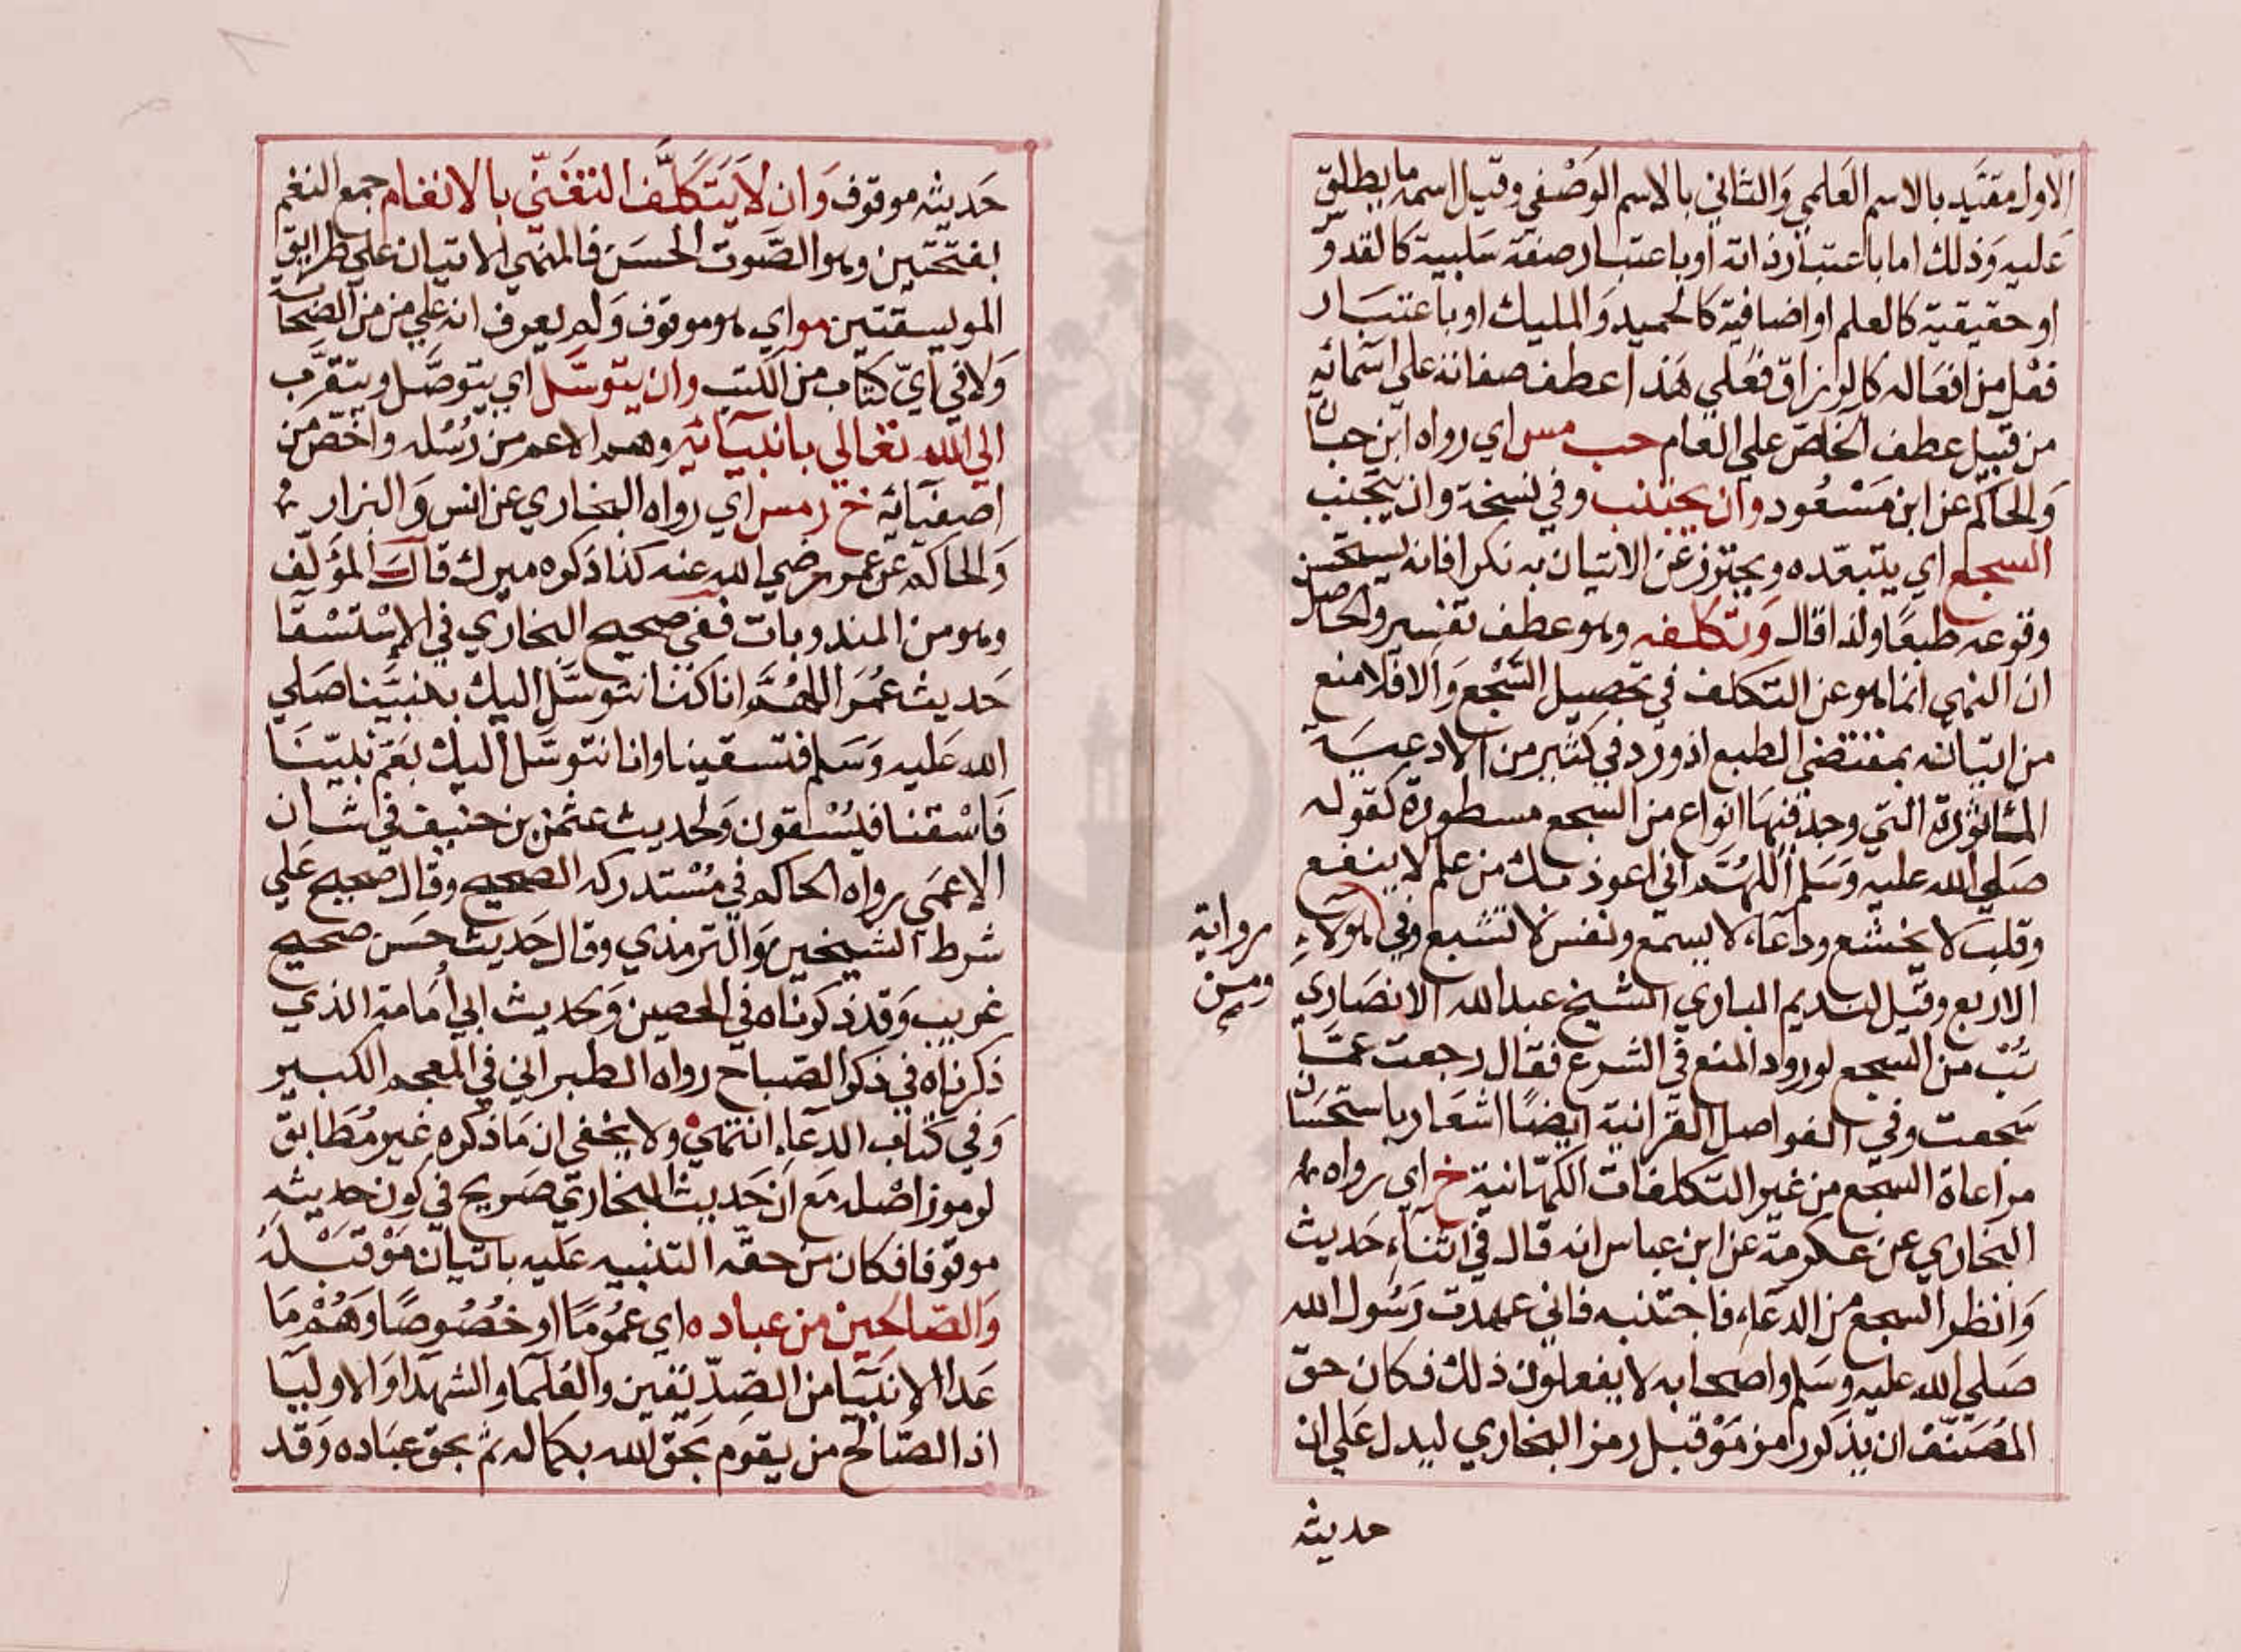 الاول مقيد بالاسم العلمي وَالثاني بالاسم الوَصْفي وقيل اسمه ما يطلق
عَليه وَذلك اما باعتبار ذاته او باعتبار صفة سَلبية كالقدو
او حقيقية كالعلم او اضافية كالحميد وَالمليك او باعتبَار
فعْل من افعَاله كالرزاق فعَلي هَذا عطف صفاته علي اسَمائه
من قبيل عطف الخاص علي العَام حب مس اي رواه ابن حبان
وَالحاكم عن ابن مَسْعُود وان يجتنب وفي نسخة وان يتجنب
السجع اي يتبعّده ويحترز عَن الاتيان به نكرا فانه يستحسن
وقوعه طبعًا ولذا قال وَتكلفه وهو عطف تفسير والحاصل
ان النهي انما هو عن التكلف في تحصيل السَّجْع وَالا فلا منع
من اتيانه بمقتضي الطبع اذ ورد في كثير من الادعيَة
المأثورة التي وجد فيهَا انواع من السجع مسطورة كقوله
صَلي الله عليه وَسَلم اللهُمَّ اني اعوذ بك من علم لا ينفع
وقلب لا يخشع ودعَاء لا يسمع ونفس لا تشبع وفي رواية ومن هؤلاءِ
الاربع وقيل لنديم الباري الشيخ عبد الله الانصَاري
تُبْ من السجع لورود المنع في الشرع فقال رجعت عمَّا
سَجعت وفي الفواصل القرَانية ايضًا اشعَار باستحسَان
مراعاة السجع من غير التكلفات الكهَانية خ اي رواه
البخاري عن عكرمة عن ابن عباس انه قال في اثنَاء حَديث
وَانظر السجع من الدعَاء فاجتنبه فاني عهدت رَسُول الله
صَلي الله عليه وسَلم واصحابه لا يفعلون ذلك فكان حق
المصَنّف ان يذكر رمز مَوْ قبل رمز البخاري ليدل عَلي ان
حديثه
حَديثه موقوف وَان لا يَتَكَلَّف التغَنّي بالانغام جمع النغم
بفتحتين وهو الصَّوت الحسَن فالمنهي الاتيان علي طرائق
الموسيقتين مو اي هو موقوف وَلم يعرف انه علي من من الصحابة
وَلا في ايّ كتاب من الكتب وان يتوسَّل اي يتوصَّل ويتقرَّب
الي الله تعالي بانبيَائه وهم الاعم من رُسُله واخَصّ من
اصفيَائه خ ر مس اي رواه البخاري عن انس وَالبزار
وَالحاكم عَن عمر رضي الله عنه كذا ذكره ميرك قالَ المؤلّف
وهو من المندوبات ففي صحيح البخاري في الاِسْتسْقَا
حَديث عُمَر اللهُمَّ انا كنا نتوسَّل اليك بنبيّنا صَلي
الله عَليه وَسَلم فتسقينا وانا نتوسَّل اليك بعَمّ نبيّنَا
فَاسْقنا فيُسْقون وَلحديث عثمن بن حنيف في شان
الاعمَي رواه الحاكم في مُسْتدركه الصحيح وقال صحيح عَلي
شرط الشيخين وَالترمذي وقال حَديث حَسَن صحيح
غريب وَقد ذكرناه في الحصين وَلحديث ابي أمَامة الذي
ذكرناه في ذكر الصّباح رواه الطبراني في المعجم الكبير
وَفي كتاب الدعَاء انتهي ولا يخفي ان مَا ذكره غير مُطَابق
لرموز اصْله مَع اَن حَديث البخاري صَريح في كون حديثه
موقوفا فكان من حقه التنبيه عَليه باتيان مَوْ قبْلهُ
وَالصَّالحِيْن من عباده اي عمُومًا او خصُوصًا وَهُمْ مَا
عَدا الانبيَا من الصّدّيقين والعُلمَا والشهدَا وَالاوليَا
اذ الصَّالح من يقوم بحَق الله بكماله ثم بحق عبَاده وَقد